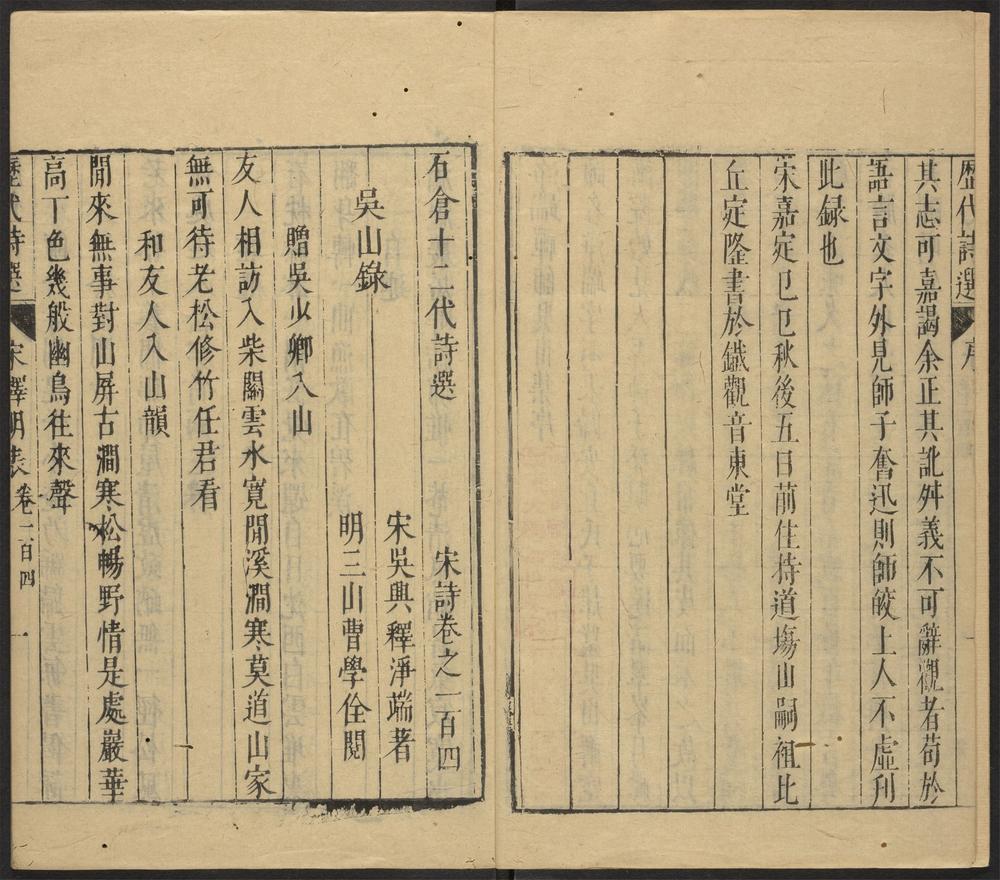 歷代詩選 序
其志可嘉謁余正其訛舛義不可辭觀者苟於
語言文字外見師子奮迅則師皎上人不虛刋
此録也
宋嘉定己巳秋後五日前住持道塲山嗣祖比
丘定隆書於鐵觀音東堂
石倉十二代詩選 宋詩卷之一百四
宋吳興釋淨端著
吳山錄
明三山曹學佺閱
贈吳少卿入山
友人相訪入柴關雲水寬閒溪澗寒莫道山家
無可待老松修竹任君看
和友人入山韻
閒來無事對山屏古澗寒松暢野情是處巖華
高下色幾般幽鳥往來聲
歷代詩選 宋釋明表 卷一百四 一